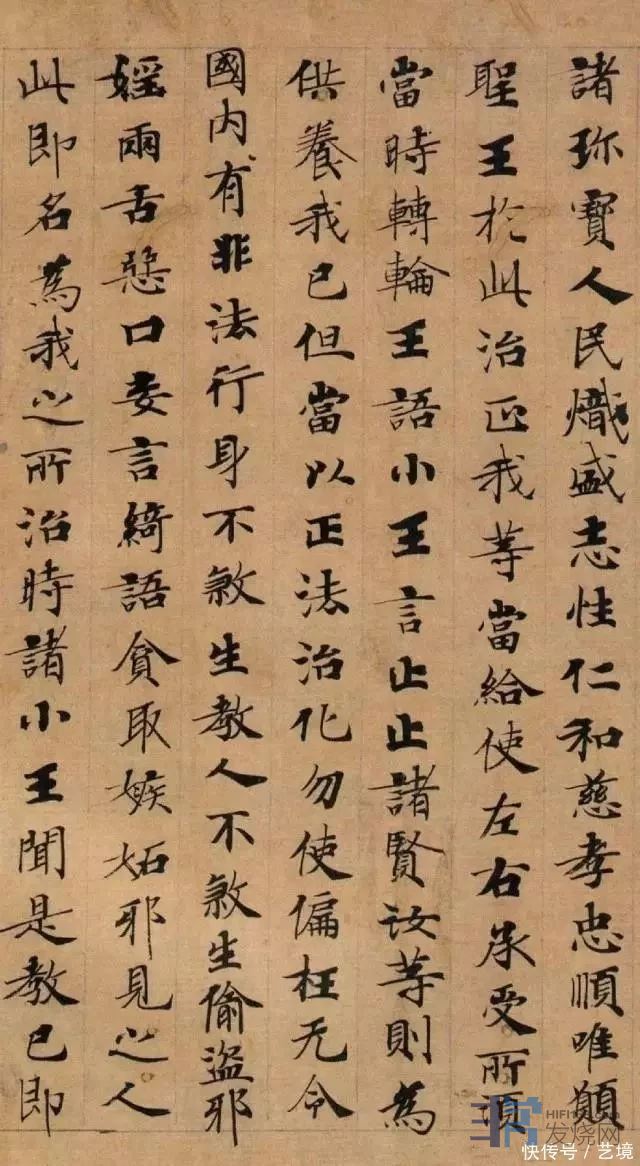 諸珎寳人民熾盛志性仁和慈孝忠順唯願
聖王於此治正我等當給使左右承受所須
當時轉輪王語小王言止止諸賢汝等則為
供養我已但當以正法治化勿使偏枉无令
國内有非法行身不煞生教人不煞生偷盜邪
婬兩舌惡口妄言綺語貪取嫉妬邪見之人
此即名為我之所治時諸小王聞是教已即
HIFI
发烧网
快传号/艺境